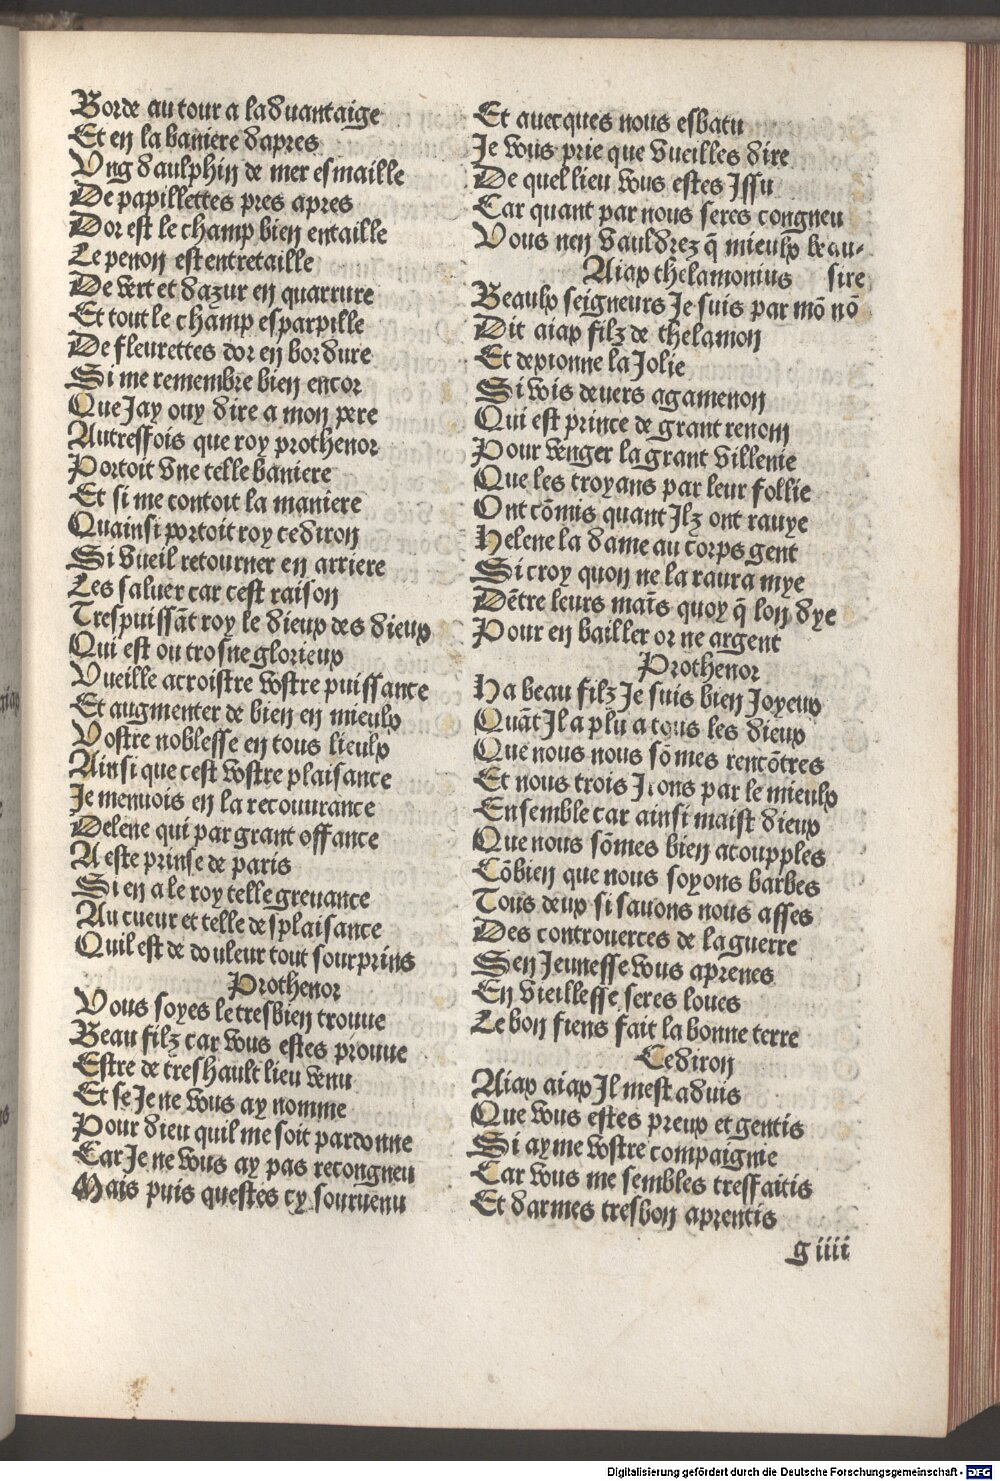 Borde au tour a laduantaige
Et en la baniere dapres
Vng daulphin de mer esmaille
De papillettes pres apres
Dor est le champ bien entaille
Le penon est entretaille
De vert et dazur en quarrure
Et tout le champ esparpille
De fleurettes dor en bordure
Si me remembre bien encor
Que Jay ouy dire a mon pere
Autreffois que roy prothenor
Portoit vne telle baniere
Et si me contoit la maniere
Quainsi portoit roy cediron
Si vueil retourner en arriere
Les saluer car cest raison
Trespuissāt roy le dieux des dieux
Qui est ou trosne glorieux
Vueille acroistre vostre puissance
Et augmenter de bien en mieulx
Vostre noblesse en tous lieulx
Ainsi que cest vostre plaisance
Je menuois en la recouurance
Delene qui par grant offance
A este prinse de paris
Si en a le roy telle greuance
Au cueur et telle desplaisance
Quil est de douleur tout sourprins
Prothenor
Vous soyes le tresbien trouue
Beau filz car vous estes prouue
Estre de treshault lieu venu
Et se Je ne vous ay nomme
Pour dieu quil me soit pardonne
Car Je ne vous ay pas recongneu
Mais puis questes cy souruenu
Et auecques nous esbatu
Je vous prie que vueilles dire
De quel lieu vous estes Jssu
Car quant par nous seres congneu
Vous nen vauldrez q̄ mieulx beau-
Aiax thelamonius sire
Beaulx seigneurs Je suis par mō nō
Dit aiax filz de thelamon
Et depionne la Jolie
Si vois deuers agamenon
Qui est prince de grant renom
Pour venger la grant villenie
Que les troyans par leur follie
Ont cōmis quant Jlz ont rauye
Helene la dame au corps gent
Si croy quon ne la raura mye
Dētre leurs mais̄ quoy q̄ lon dye
Pour en bailler or ne argent
Prothenor
Ha beau filz Je suis bien Joyeux
Quāt Jl a plu a tous les dieux
Que nous nous sōmes rencōtres
Et nous trois Jrons par le mieulx
Ensemble car ainsi maist dieux
Que nous sōmes bien acoupples
Cōbien que nous soyons barbes
Tous deux si sauons nous asses
Des controuerces de la guerre
Sen Jeunesse vous aprenes
En vieillesse seres loues
Le bon fiens fait la bonne terre
Cediron
Aiax aiax Jl mest aduis
Que vous estes preux et gentis
Si ayme vostre compaignie
Car vous me sembles tresfaitis
Et darmes tresbon aprentis
g iiii
Digitalisierung gefördert durch die Deutsche Forschungsgemeinschaft - DFG